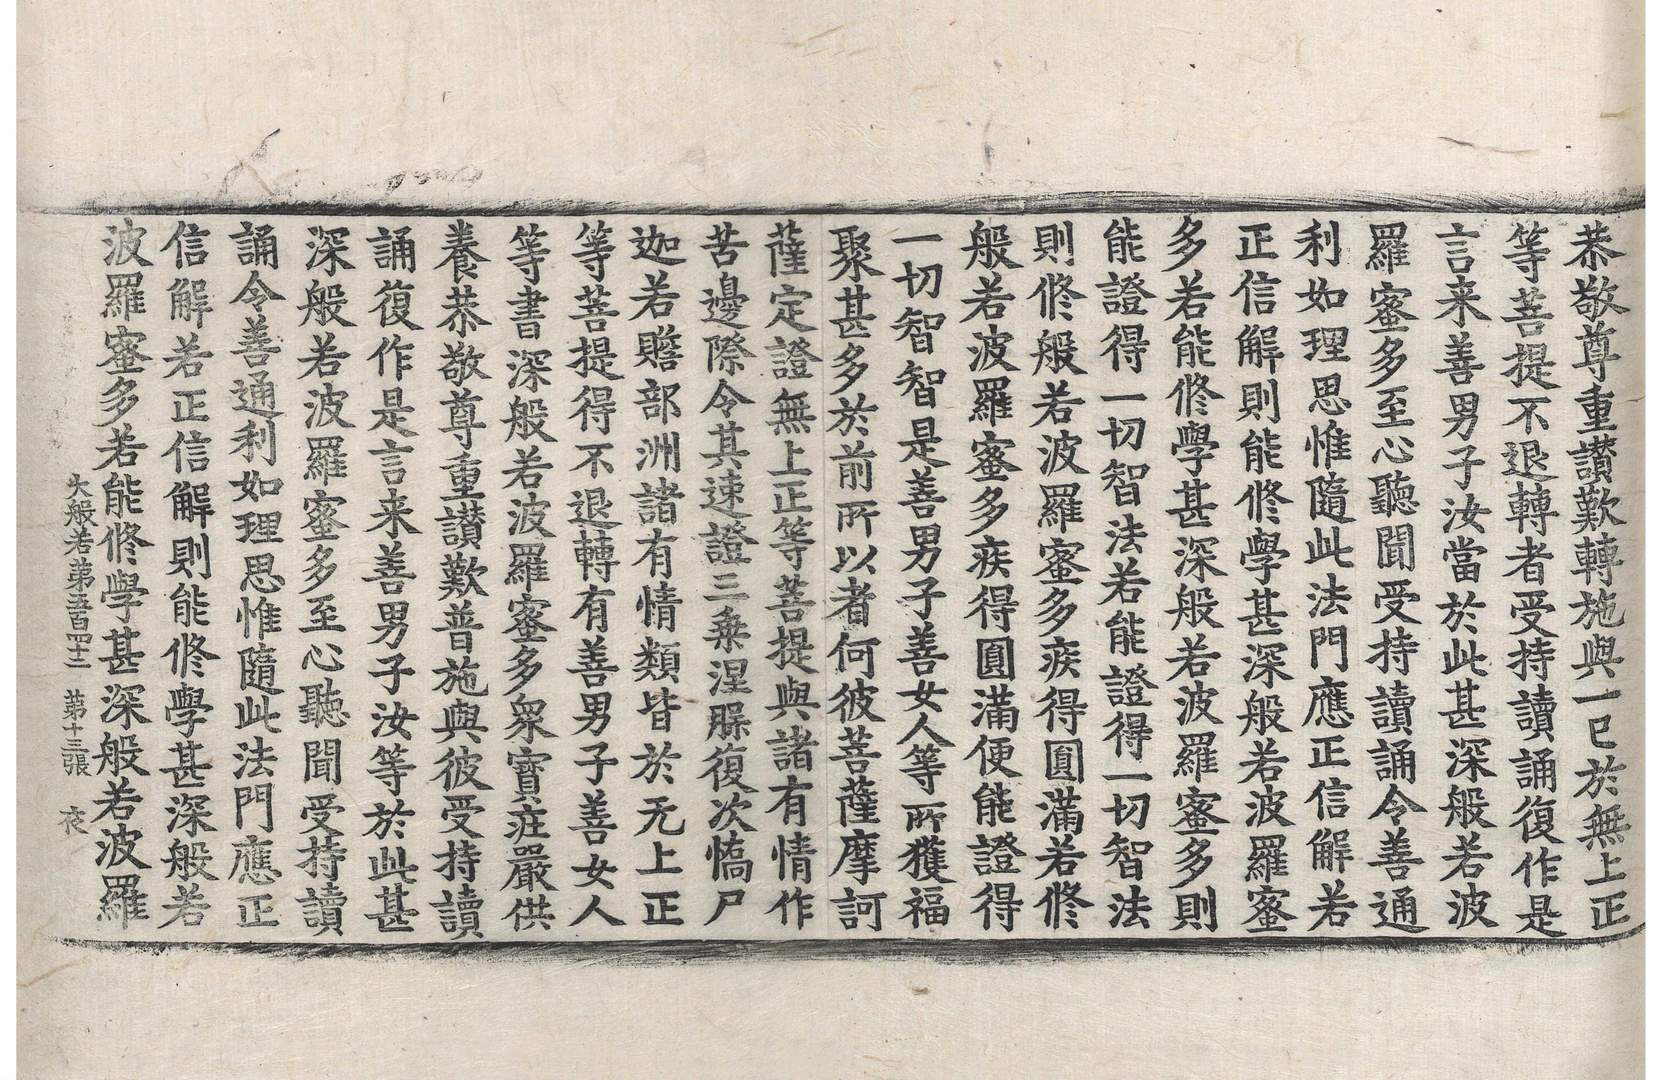 恭敬尊重讃歎轉施與一已於無上正
等菩提不退轉者受持讀誦復作是
言来善男子汝當於此甚深般若波
羅蜜多至心聽聞受持讀誦令善通
利如理思惟隨此法門應正信解若
正信解則能修學甚深般若波羅蜜
多若能修學甚深般若波羅蜜多則
能證得一切智法若能證得一切智法
則修般若波羅蜜多疾得圓滿若修
般若波羅蜜多疾得圓滿便能證得
一切智智是善男子善女人等所獲福
聚甚多於前所以者何彼菩薩摩訶
薩定證無上正等菩提與諸有情作
苦邊際令其速證三乗涅槃復次憍尸
迦若贍部洲諸有情類皆於无上正
等菩提得不退轉有善男子善女人
等書深般若波羅蜜多衆寶莊嚴供
養恭敬尊重讃歎普施與彼受持讀
誦復作是言来善男子汝等於此甚
深般若波羅蜜多至心聽聞受持讀
誦令善通利如理思惟隨此法門應正
信解若正信解則能修學甚深般若
波羅蜜多若能修學甚深般若波羅
大般若第五百四十二 第十三張 夜